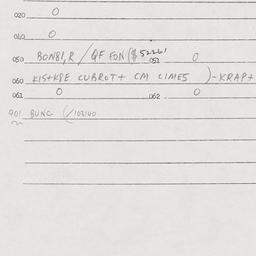 020 0
040 0
050 BON81,R / QF FON ($52261 051 0
060 KIS+KBE CUBROT+ CM CIMES )-KRAP+
061 0 062 0
901 BUNG (/103140